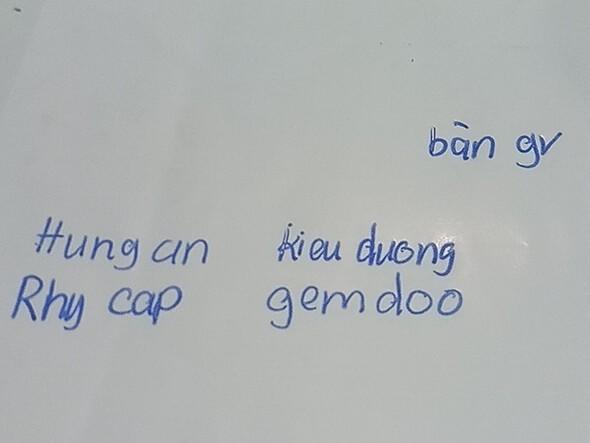 bàn gv
Hung an kieu duong
Rhy cap gemdoo